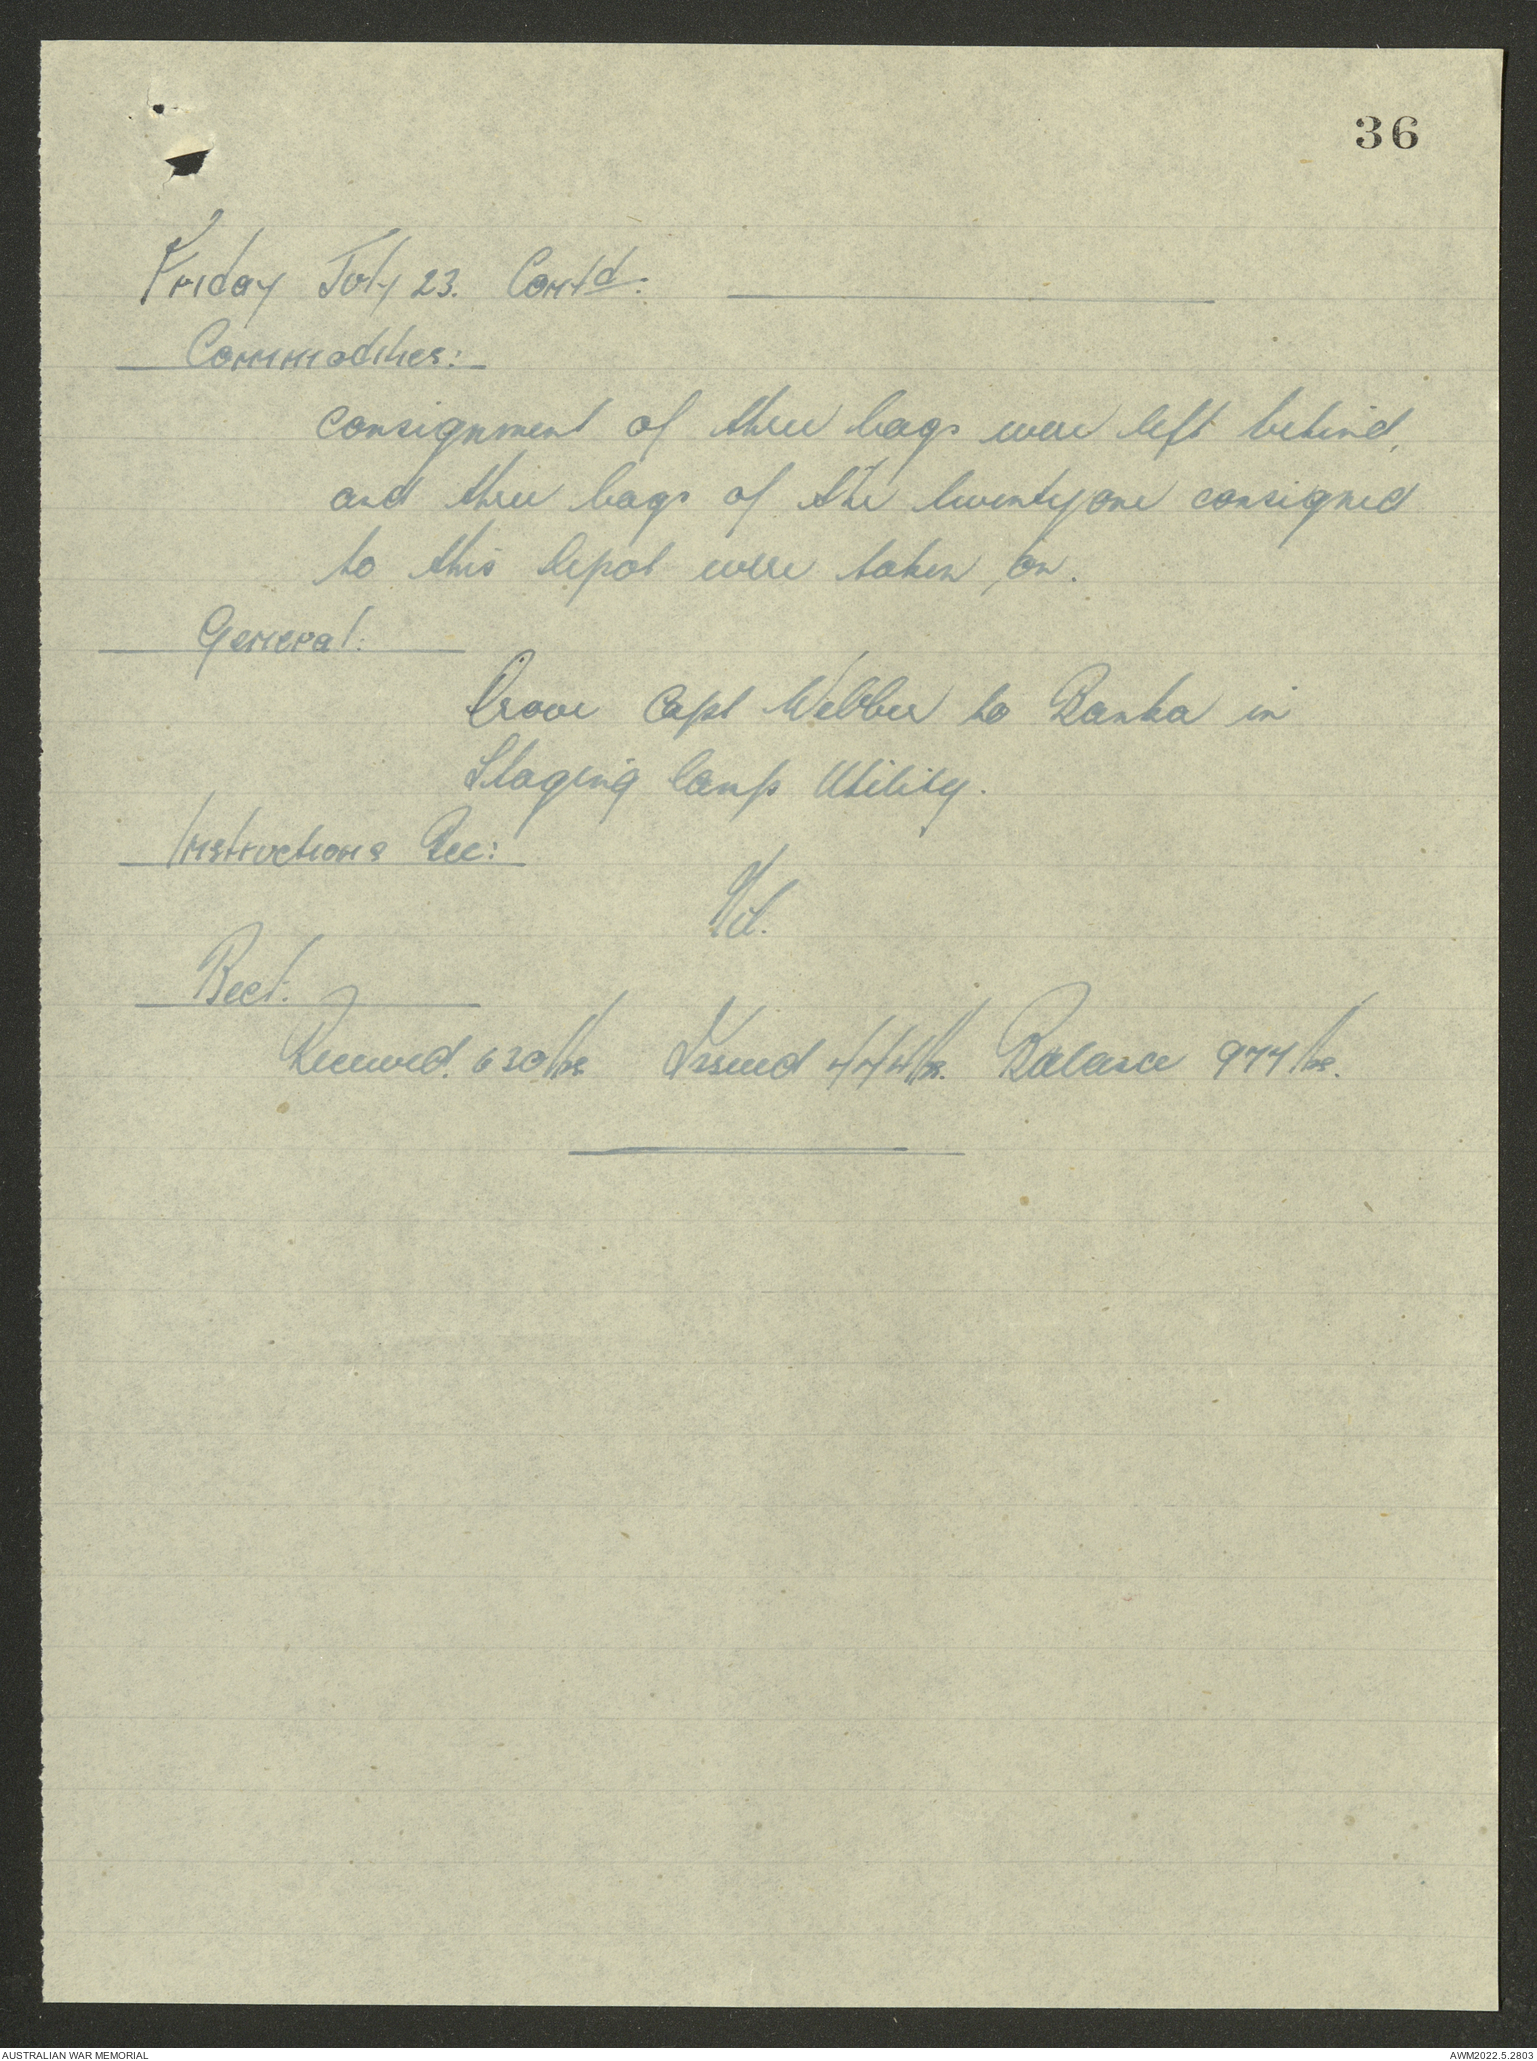 36
Friday July 23. Contd:
Commodities:
consignment of three bags were left behind,
and three bags of the twentyone consigned
to this depot were taken on.
General:
Drove Capt Webber to Banka in
Staging Camp Utility.
Instructions Rec:
Nil.
Beef:
Received. 630lbs Issued 444lbs. Balance 977lbs.
AUSTRALIAN WAR MEMORIAL
AWM2022.5.2803